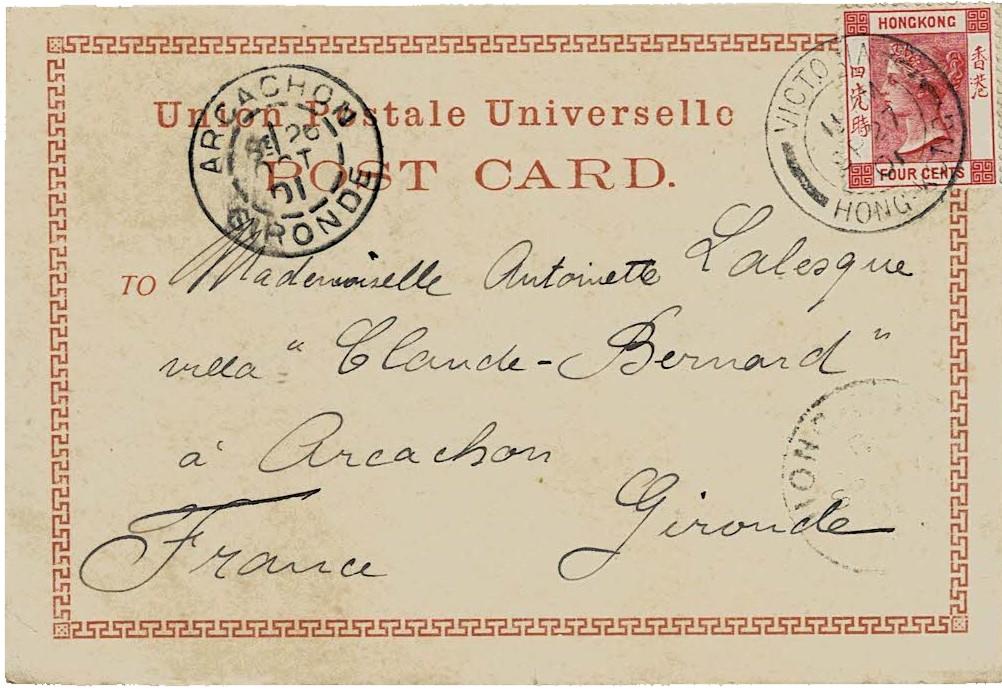 HONGKONG
香港
四先時
FOUR CENTS
VICTORIA
HONG-KONG
27
01
Union Postale Universelle
POST CARD.
ARCACHON
26
OCT
01
GIRONDE
TO Mademoiselle Antoinette Lalesque
villa " Claude-Bernard "
à Arcachon
Gironde
France